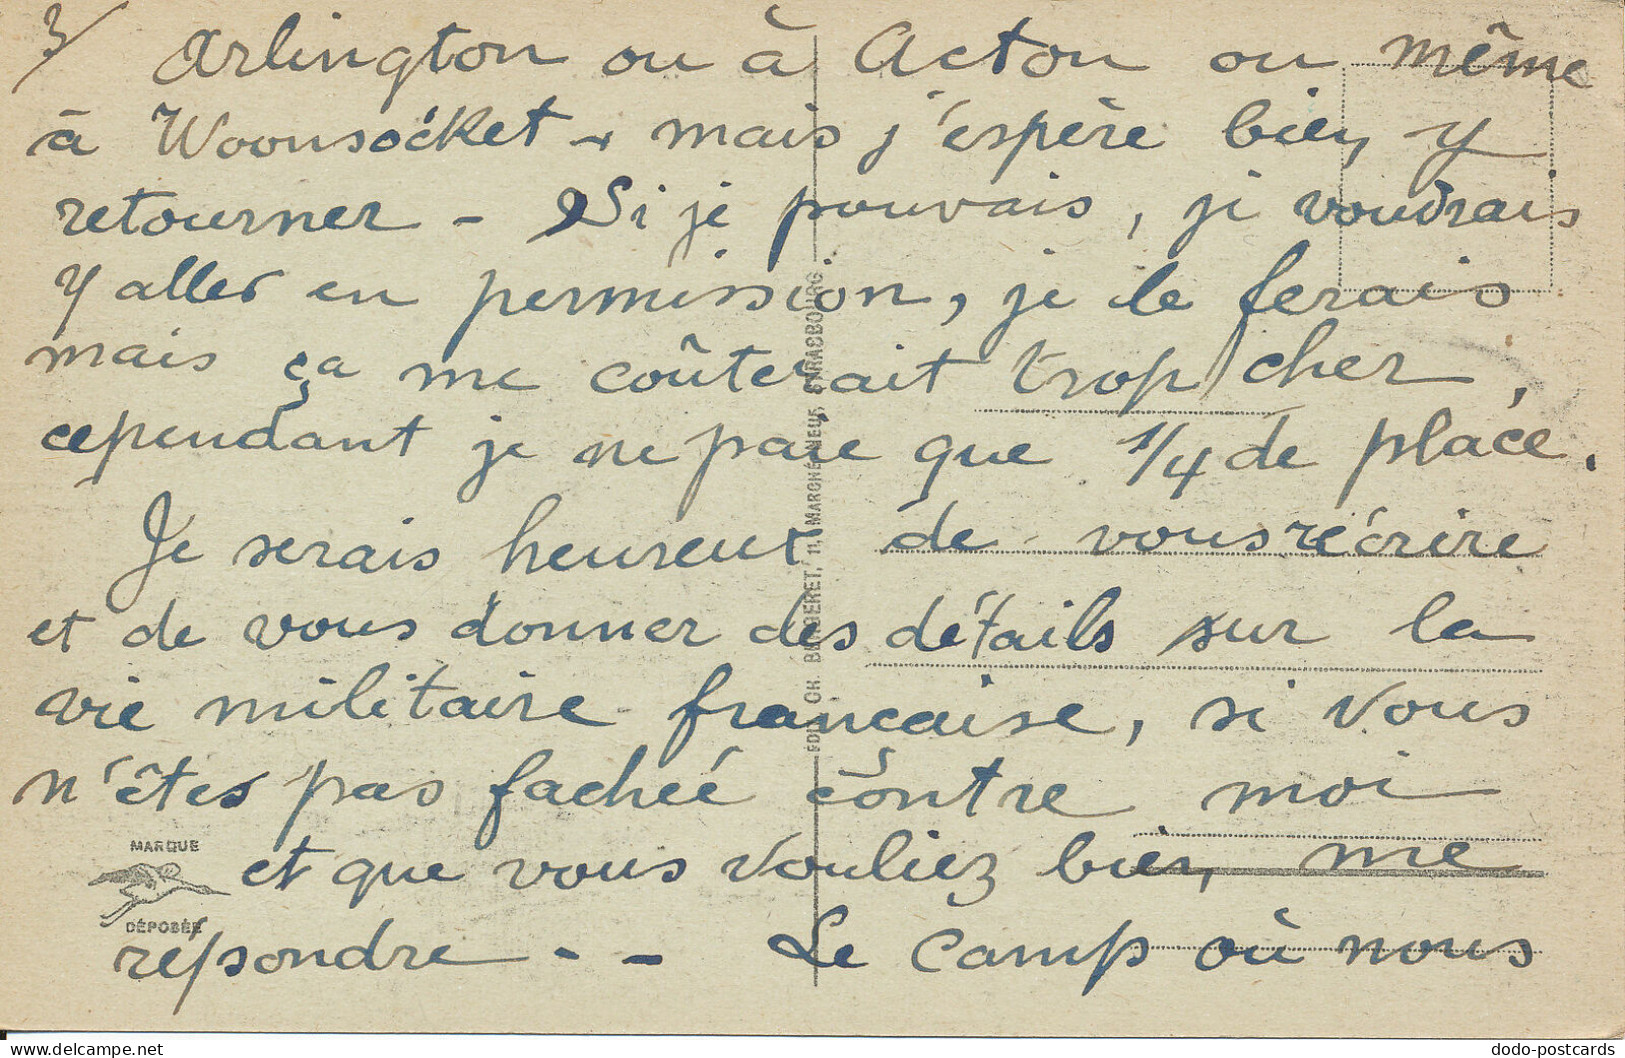 3/ Arlington ou à Acton ou même
à Woonsocket - mais j'espère bien y
retourner - Si je pouvais, je voudrais
y aller en permission, je le ferais
mais ça me coûterait trop cher,
cependant je ne paie que 1/4 de place.
Je serais heureux de vous réécrire
et de vous donner des détails sur la
vie militaire française, si vous
n'êtes pas fachée contre moi
et que vous vouliez bien me
répondre - - Le camp où nous
MARQUE
DÉPOSÉE
EDIT. CH. BERGERET, 11, MARCHÉ-NEUF, STRASBOURG
delcampe.net
dodo-postcards